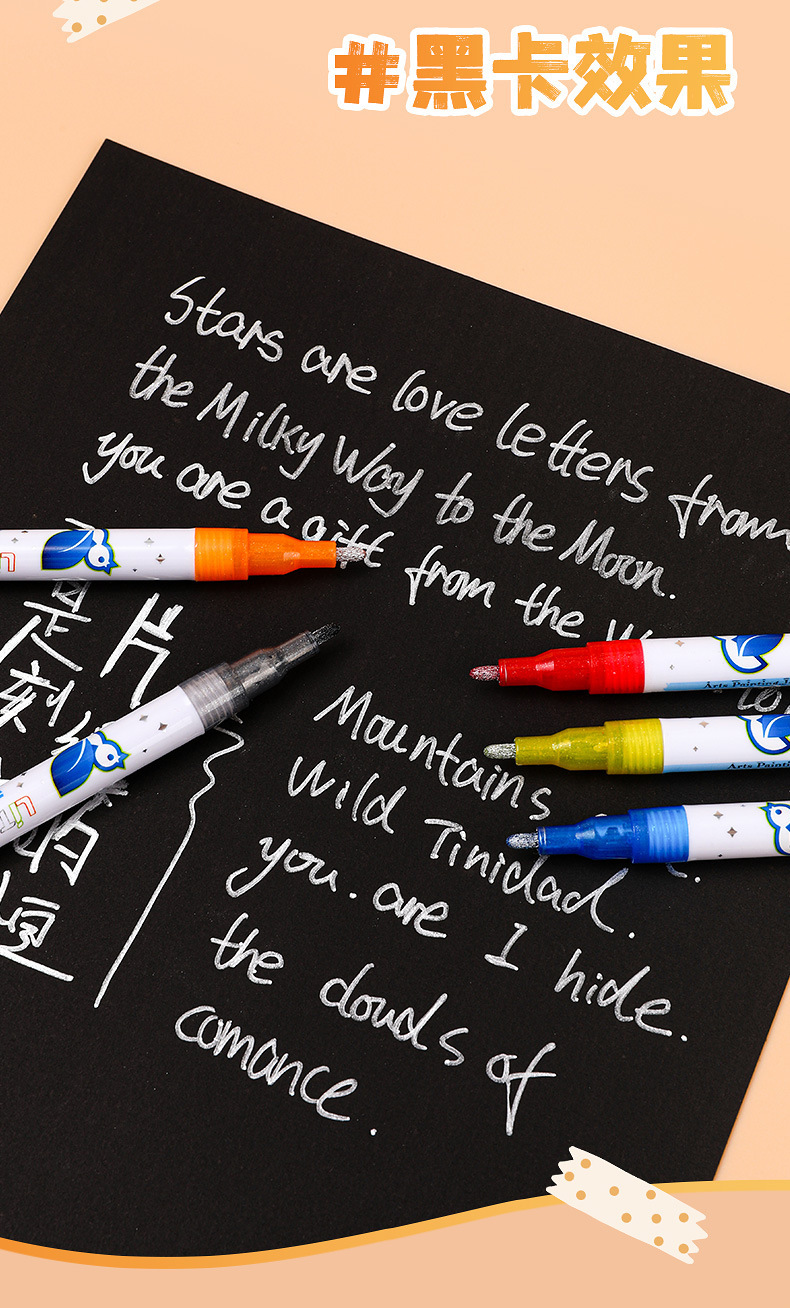 #黑卡效果
Stars are love letters from
the Milky Way to the Moon.
you are a gift from the W
是 片
刻
的
恒
Mountains
Wild Tinidad.
you. are I hide.
the clouds of
comance.
Arts Painting
Arts Painti